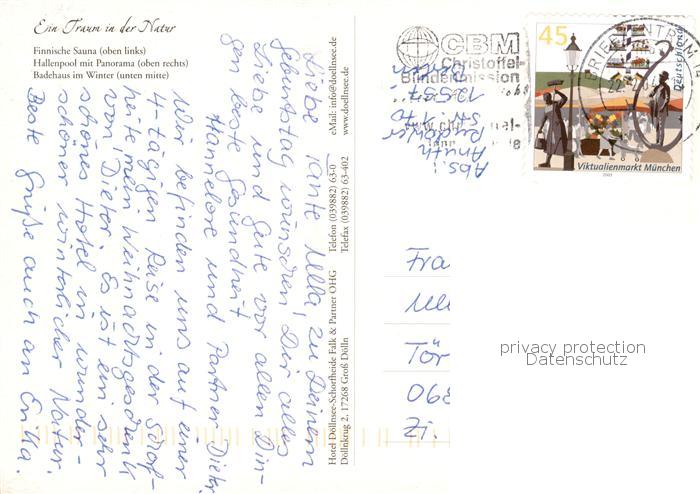 Ein Traum in der Natur
Finnische Sauna (oben links)
Hallenpool mit Panorama (oben rechts)
Badehaus im Winter (unten mitte)
Liebe Tante Ulla, zu Deinem
Geburtstag wünschen Dir alles
Liebe und Gute vor allen Din-
gen beste Gesundheit
Hannelore und Partner Dieter.
Wir befinden uns auf einer
4-tägigen Reise in der Schorf-
heite, mein Weihnachtsgeschenk
von Dieter. Es ist ein sehr
schönes Hotel in wunder-
schöner winterlicher Natur.
Beste Grüße auch an Erika.
Hotel Döllnsee-Schorfheide Falk & Partner OHG Telefon (039882) 63-0 eMail: info@doellnsee.de
Döllnkrug 2, 17268 Groß Dölln Telefax (039882) 63-402 www.doellnsee.de
CBM
Christoffel-
Blindenmission
Abs.:
Berlin
45
Deutschland
BRIEFZENTRUM
Viktualienmarkt München
2003
Fra
Tör
068
Zi.
privacy protection
Datenschutz